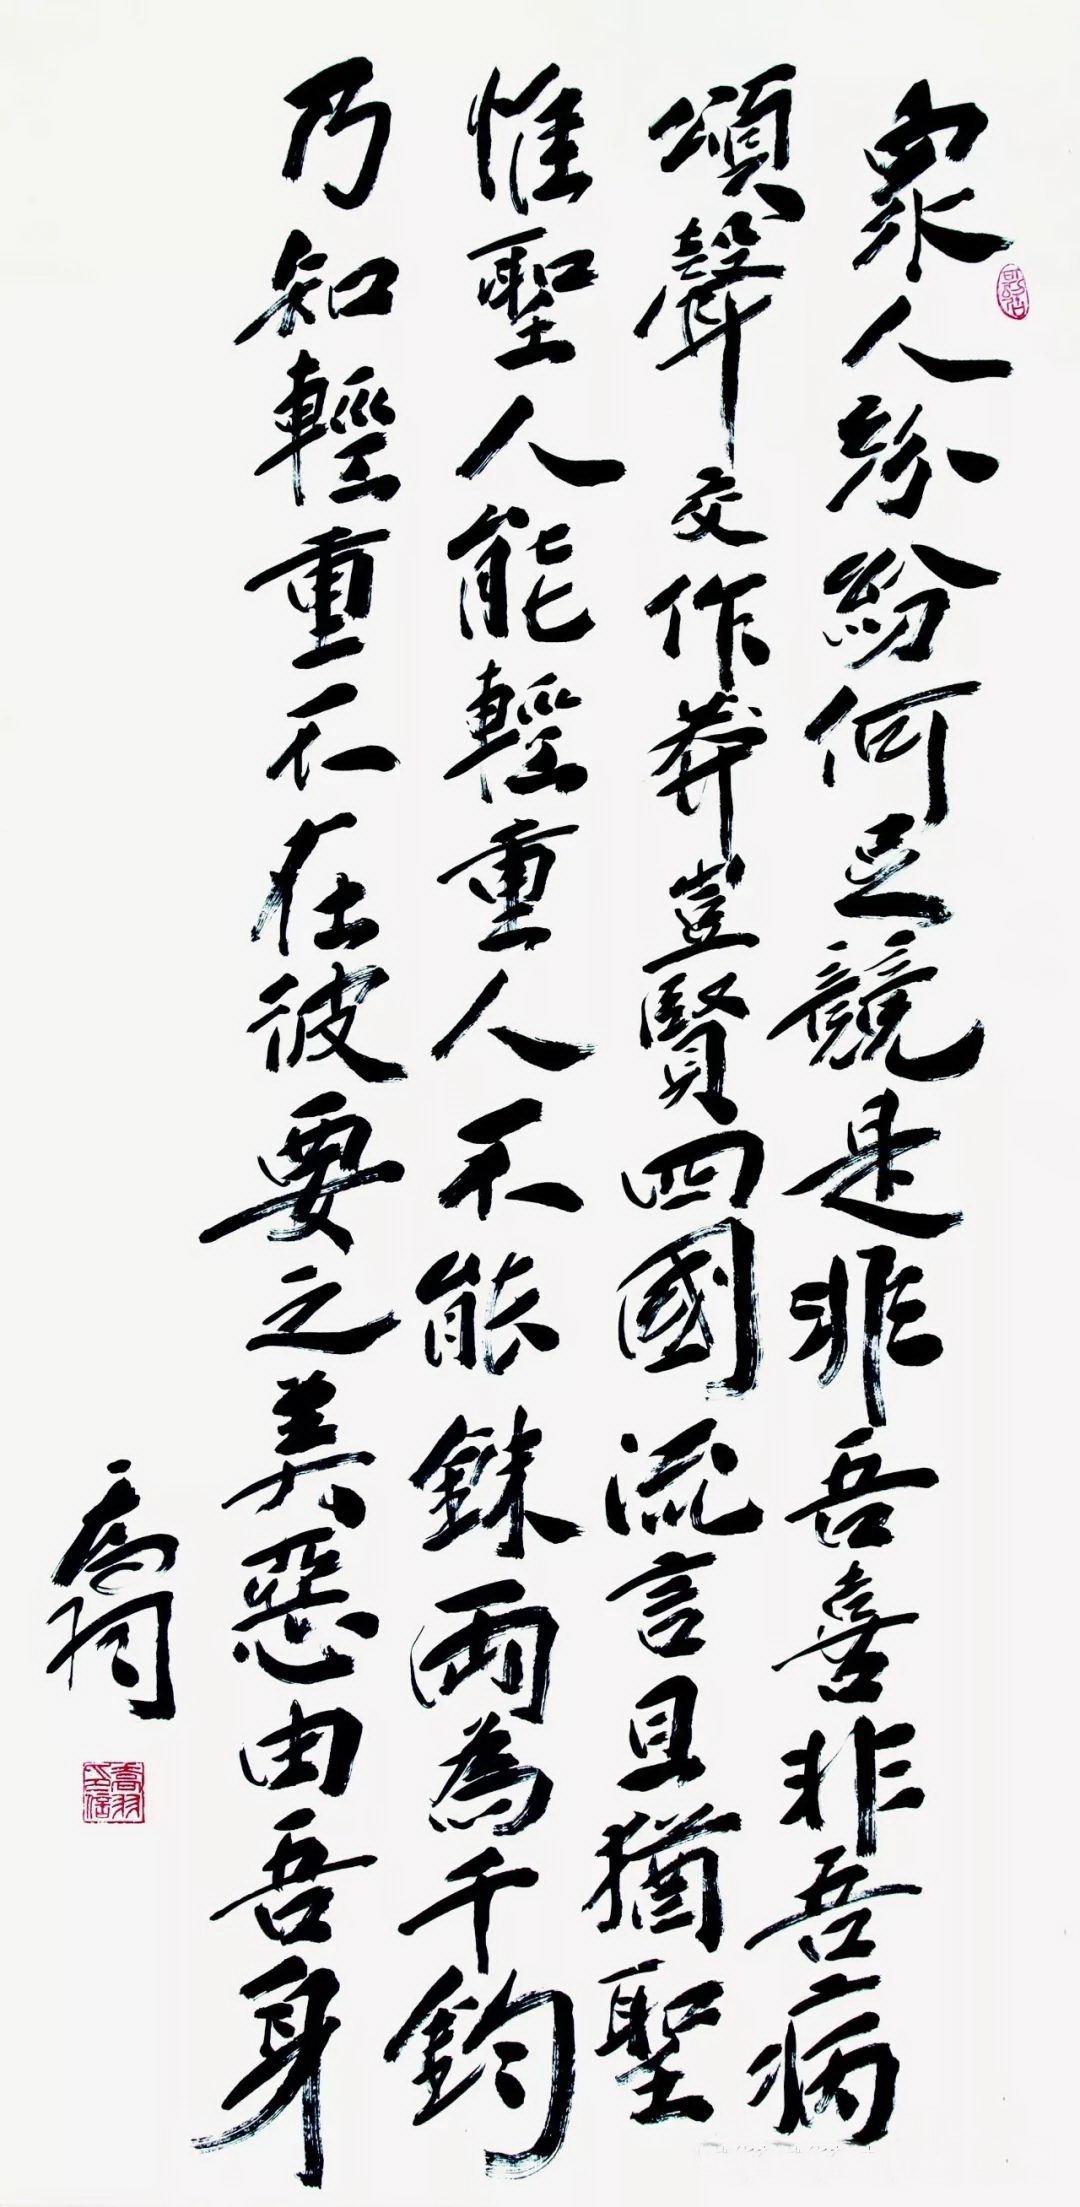 眾人紛紛何足競是非吾喜非吾病
頌聲交作莽豈賢四國流言旦猶聖
惟聖人能輕重人不能銖兩為千鈞
乃知輕重不在彼要之美惡由吾身
喬羽
喬羽印信